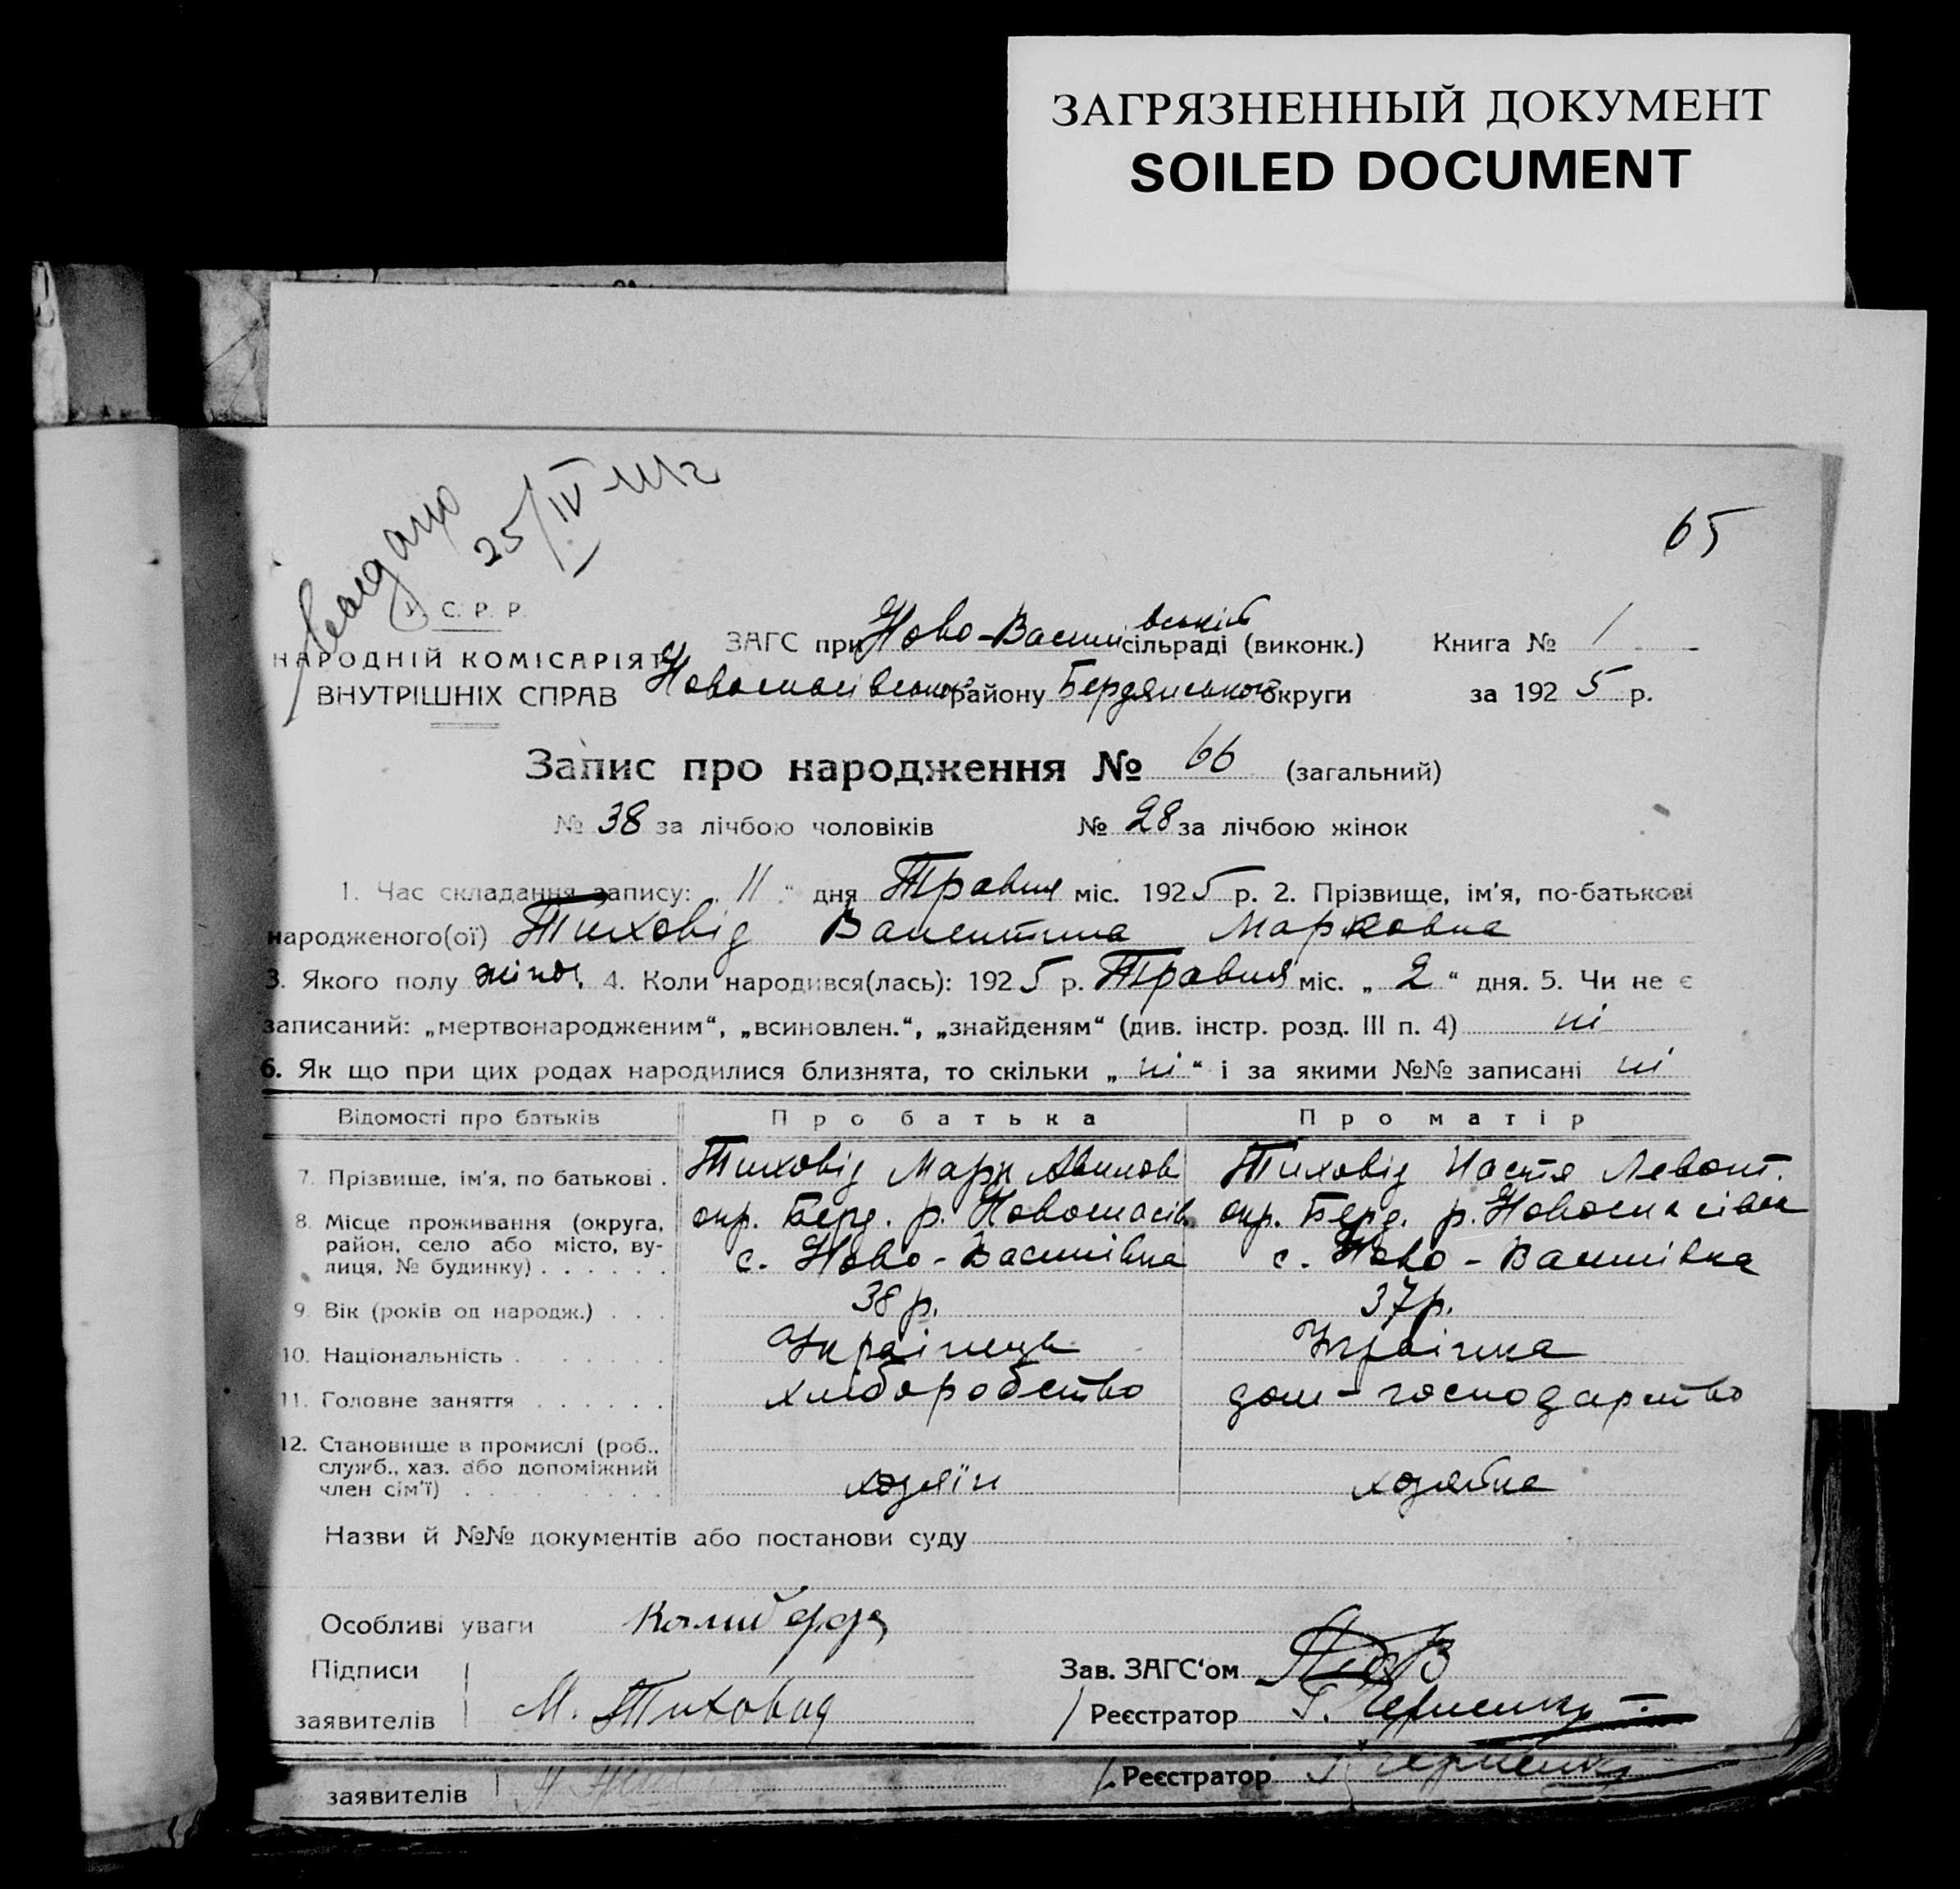 ЗАГРЯЗНЕННЫЙ ДОКУМЕНТ
SOILED DOCUMENT
25/IV
65
У. С. Р. Р.
НАРОДНІЙ КОМІСАРІЯТ
ВНУТРІШНІХ СПРАВ
ЗАГС при Ново-Василівській сільраді (виконк.) Книга № 1
Новоспасівського району Бердянської округи за 1925 р.
Запис про народження № 66 (загальний)
№ 38 за лічбою чоловіків № 28 за лічбою жінок
1. Час складання запису: 11 " дня Травня міс. 1925 р. 2. Прізвище, ім'я, по-батькові
народженого(ої) Тиховід Валентина Марковна
3. Якого полу жіноч. 4. Коли народився(лась): 1925 р. Травня міс. „ 2 " дня. 5. Чи не є
записаний: „мертвонародженим", „всиновлен.", „знайденям" (див. інстр. розд. III п. 4) ні
6. Як що при цих родах народилися близнята, то скільки „ ні " і за якими №№ записані ні
Відомості про батьків Про батька Про матір
7. Прізвище, ім'я, по батькові . Тиховід Марк Тиховід Настя Левонт.
8. Місце проживання (округа, окр. Берд. р. Новоспасів. окр. Берд. р. Новоспасівськ
район, село або місто, ву- с. Ново-Василівка с. Ново-Василівка
лиця, № будинку) . . . . . .
9. Вік (років од народж.) . . . 38 р. 37 р.
10. Національність . . . . . . . Українець Українка
11. Головне заняття . . . . . . хліборобство дом-господарство
12. Становище в промислі (роб.,
служб., хаз. або допоміжний
член сім'ї) . . . . . . . . хозяїн хозяйка
Назви й №№ документів або постанови суду
Особливі уваги
Підписи Зав. ЗАГС'ом
заявителів М. Тиховид Реєстратор
заявителів Реєстратор